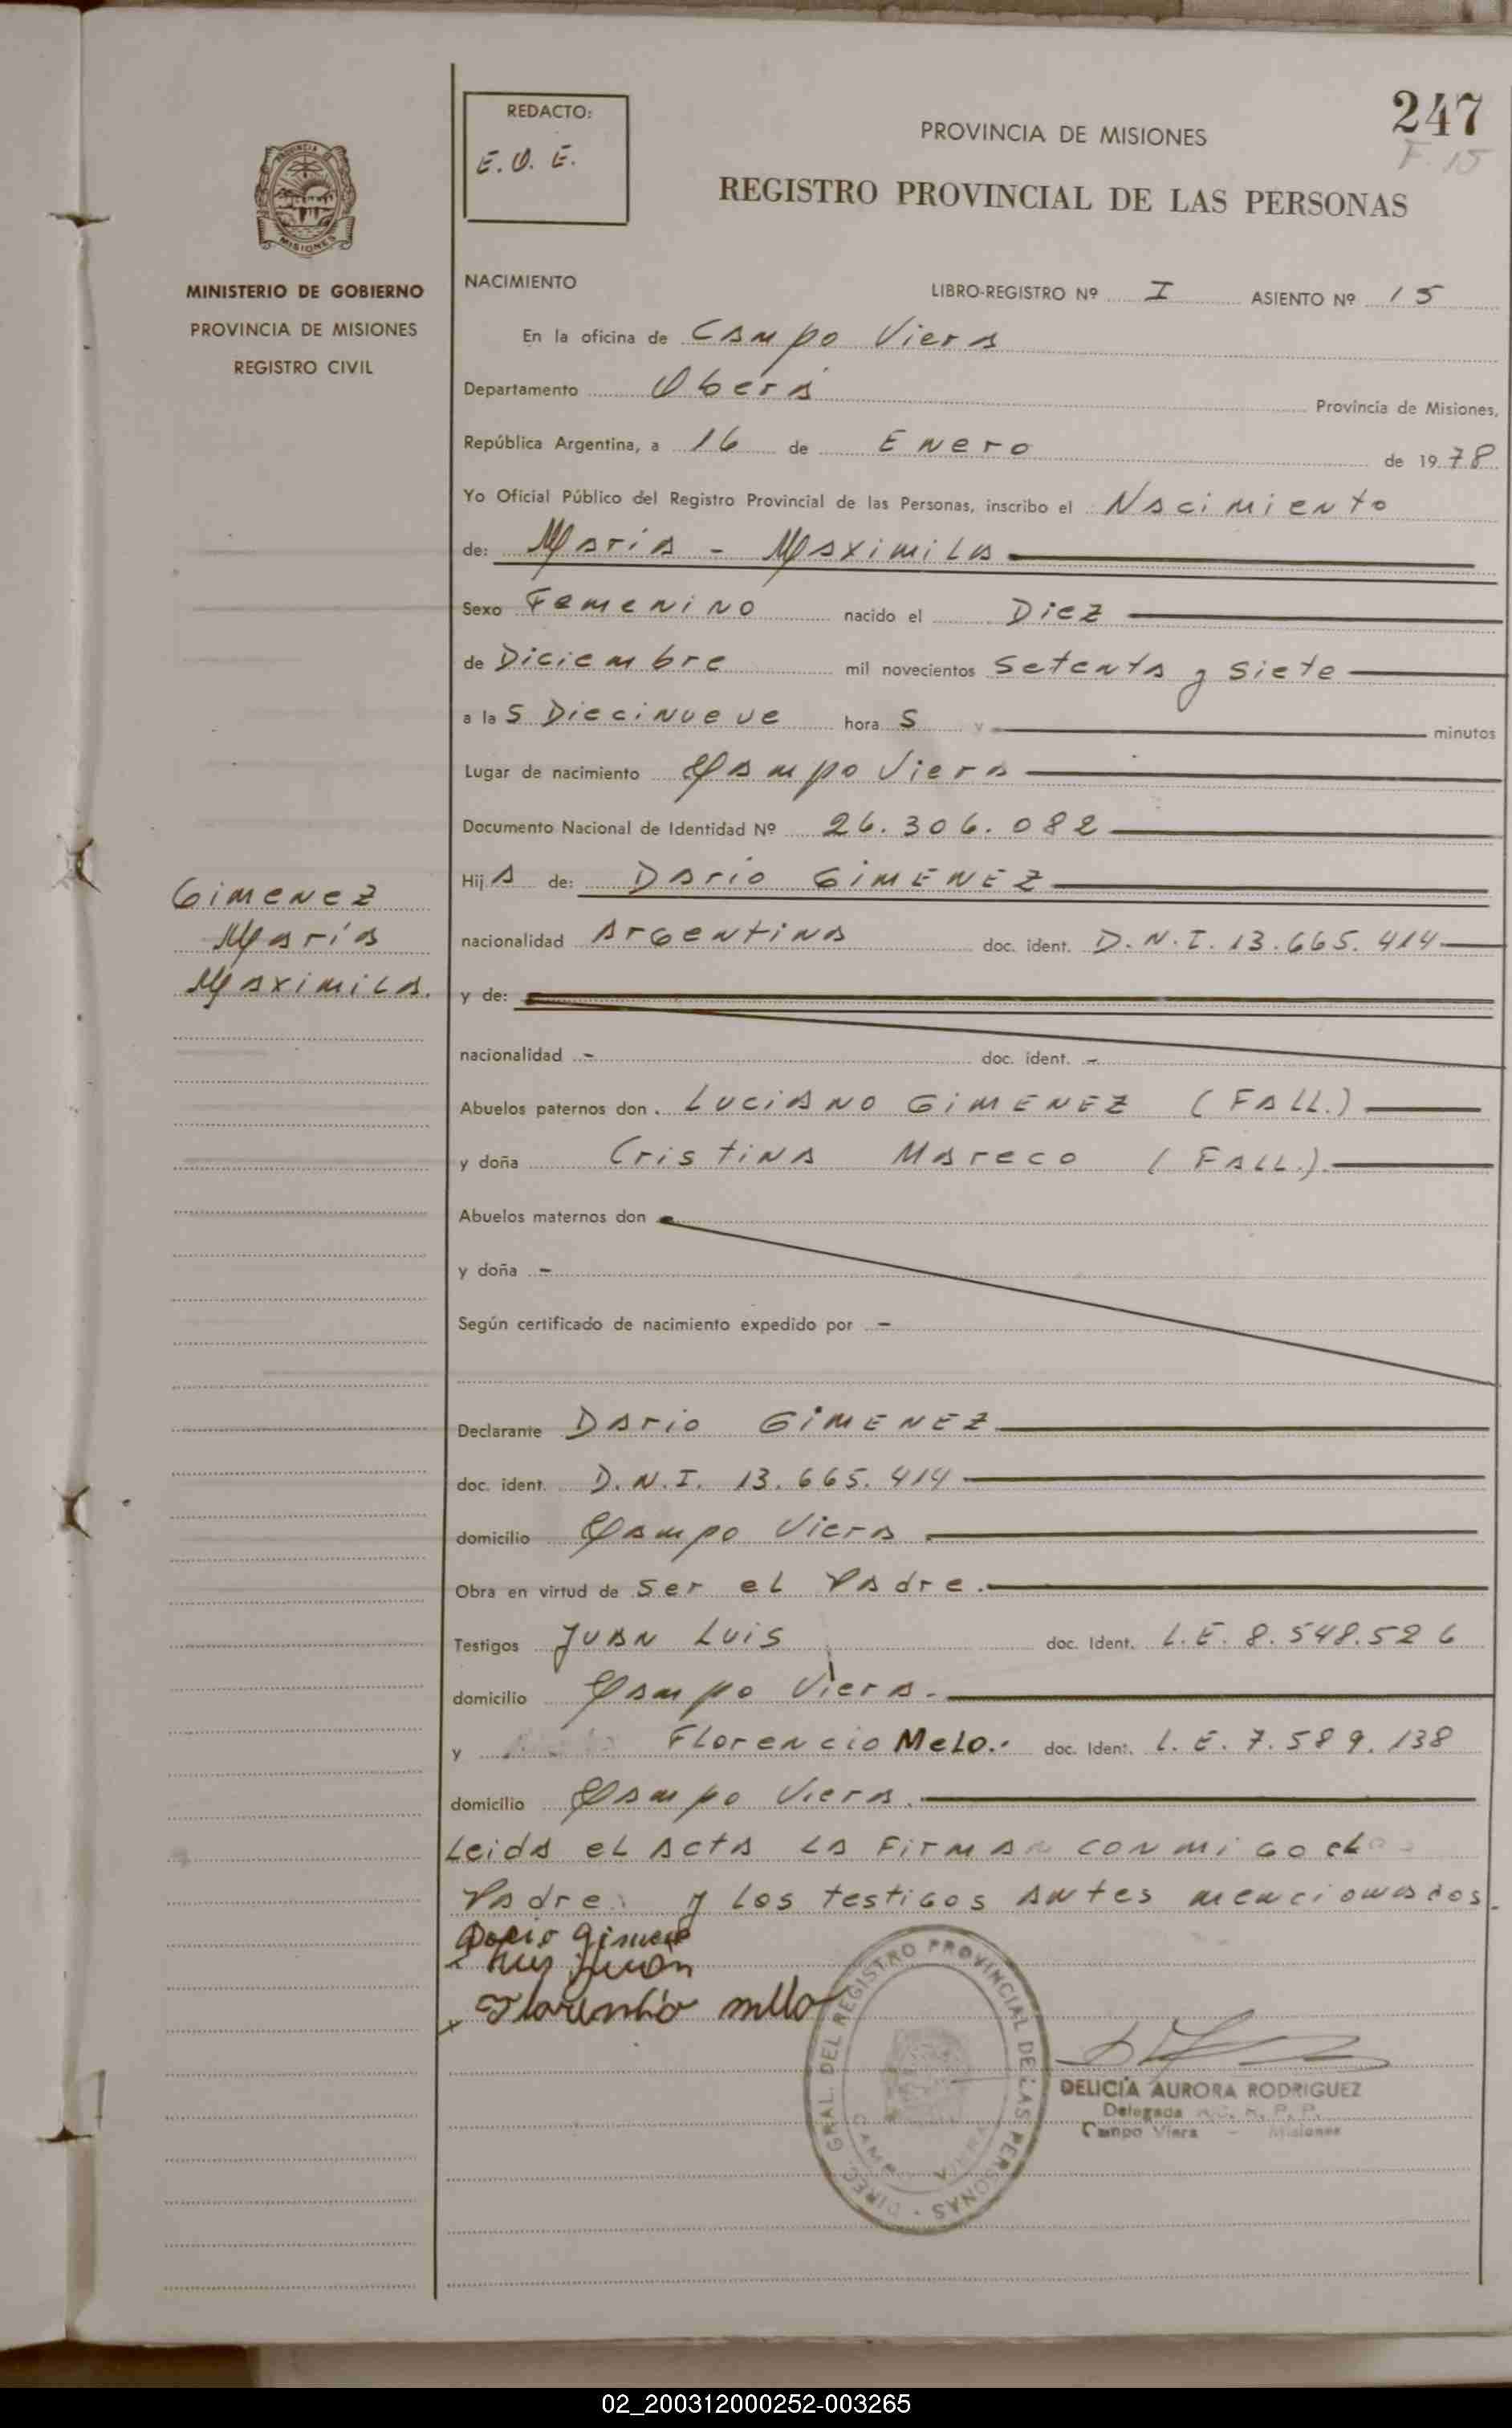 247
F. 15
REDACTO:
E. O. E.
PROVINCIA DE MISIONES
REGISTRO PROVINCIAL DE LAS PERSONAS
PROVINCIA DE
MISIONES
MINISTERIO DE GOBIERNO
PROVINCIA DE MISIONES
REGISTRO CIVIL
NACIMIENTO
LIBRO-REGISTRO Nº I ASIENTO Nº 15
En la oficina de Campo Viera
Departamento Oberá Provincia de Misiones,
República Argentina, a 16 de Enero de 1978
Yo Oficial Público del Registro Provincial de las Personas, inscribo el Nacimiento
de: María - Maximila
Sexo Femenino nacido el Diez
de Diciembre mil novecientos Setenta y siete
a las Diecinueve horas y minutos
Lugar de nacimiento Campo Viera
Documento Nacional de Identidad Nº 26.306.082
Hija de: Dario GIMENEZ
nacionalidad Argentina doc. ident. D.N.I. 13.665.414
Gimenez
María
Maximila.
y de:
nacionalidad - doc. ident. -
Abuelos paternos don. Luciano GIMENEZ (FALL.)
y doña Cristina Mareco (FALL.)
Abuelos maternos don
y doña -
Según certificado de nacimiento expedido por -
Declarante Dario GIMENEZ
doc. ident. D.N.I. 13.665.414
domicilio Campo Viera
Obra en virtud de ser el Padre.
Testigos Juan Luis doc. Ident. L.E. 8.548.526
domicilio Campo Viera.
y Florencio Melo. doc. Ident. L.E. 7.589.138
domicilio Campo Viera.
Leida el acta la firman conmigo el
Padre y los testigos antes mencionados.
Dario Gimenez
Luis Juan
x Florenhio mello
DIREC. GRAL. DEL REGISTRO PROVINCIAL DE LAS PERSONAS
CAMPO VIERA
DELICIA AURORA RODRIGUEZ
Delegada R. P. P.
Campo Viera - Misiones
02_200312000252-003265